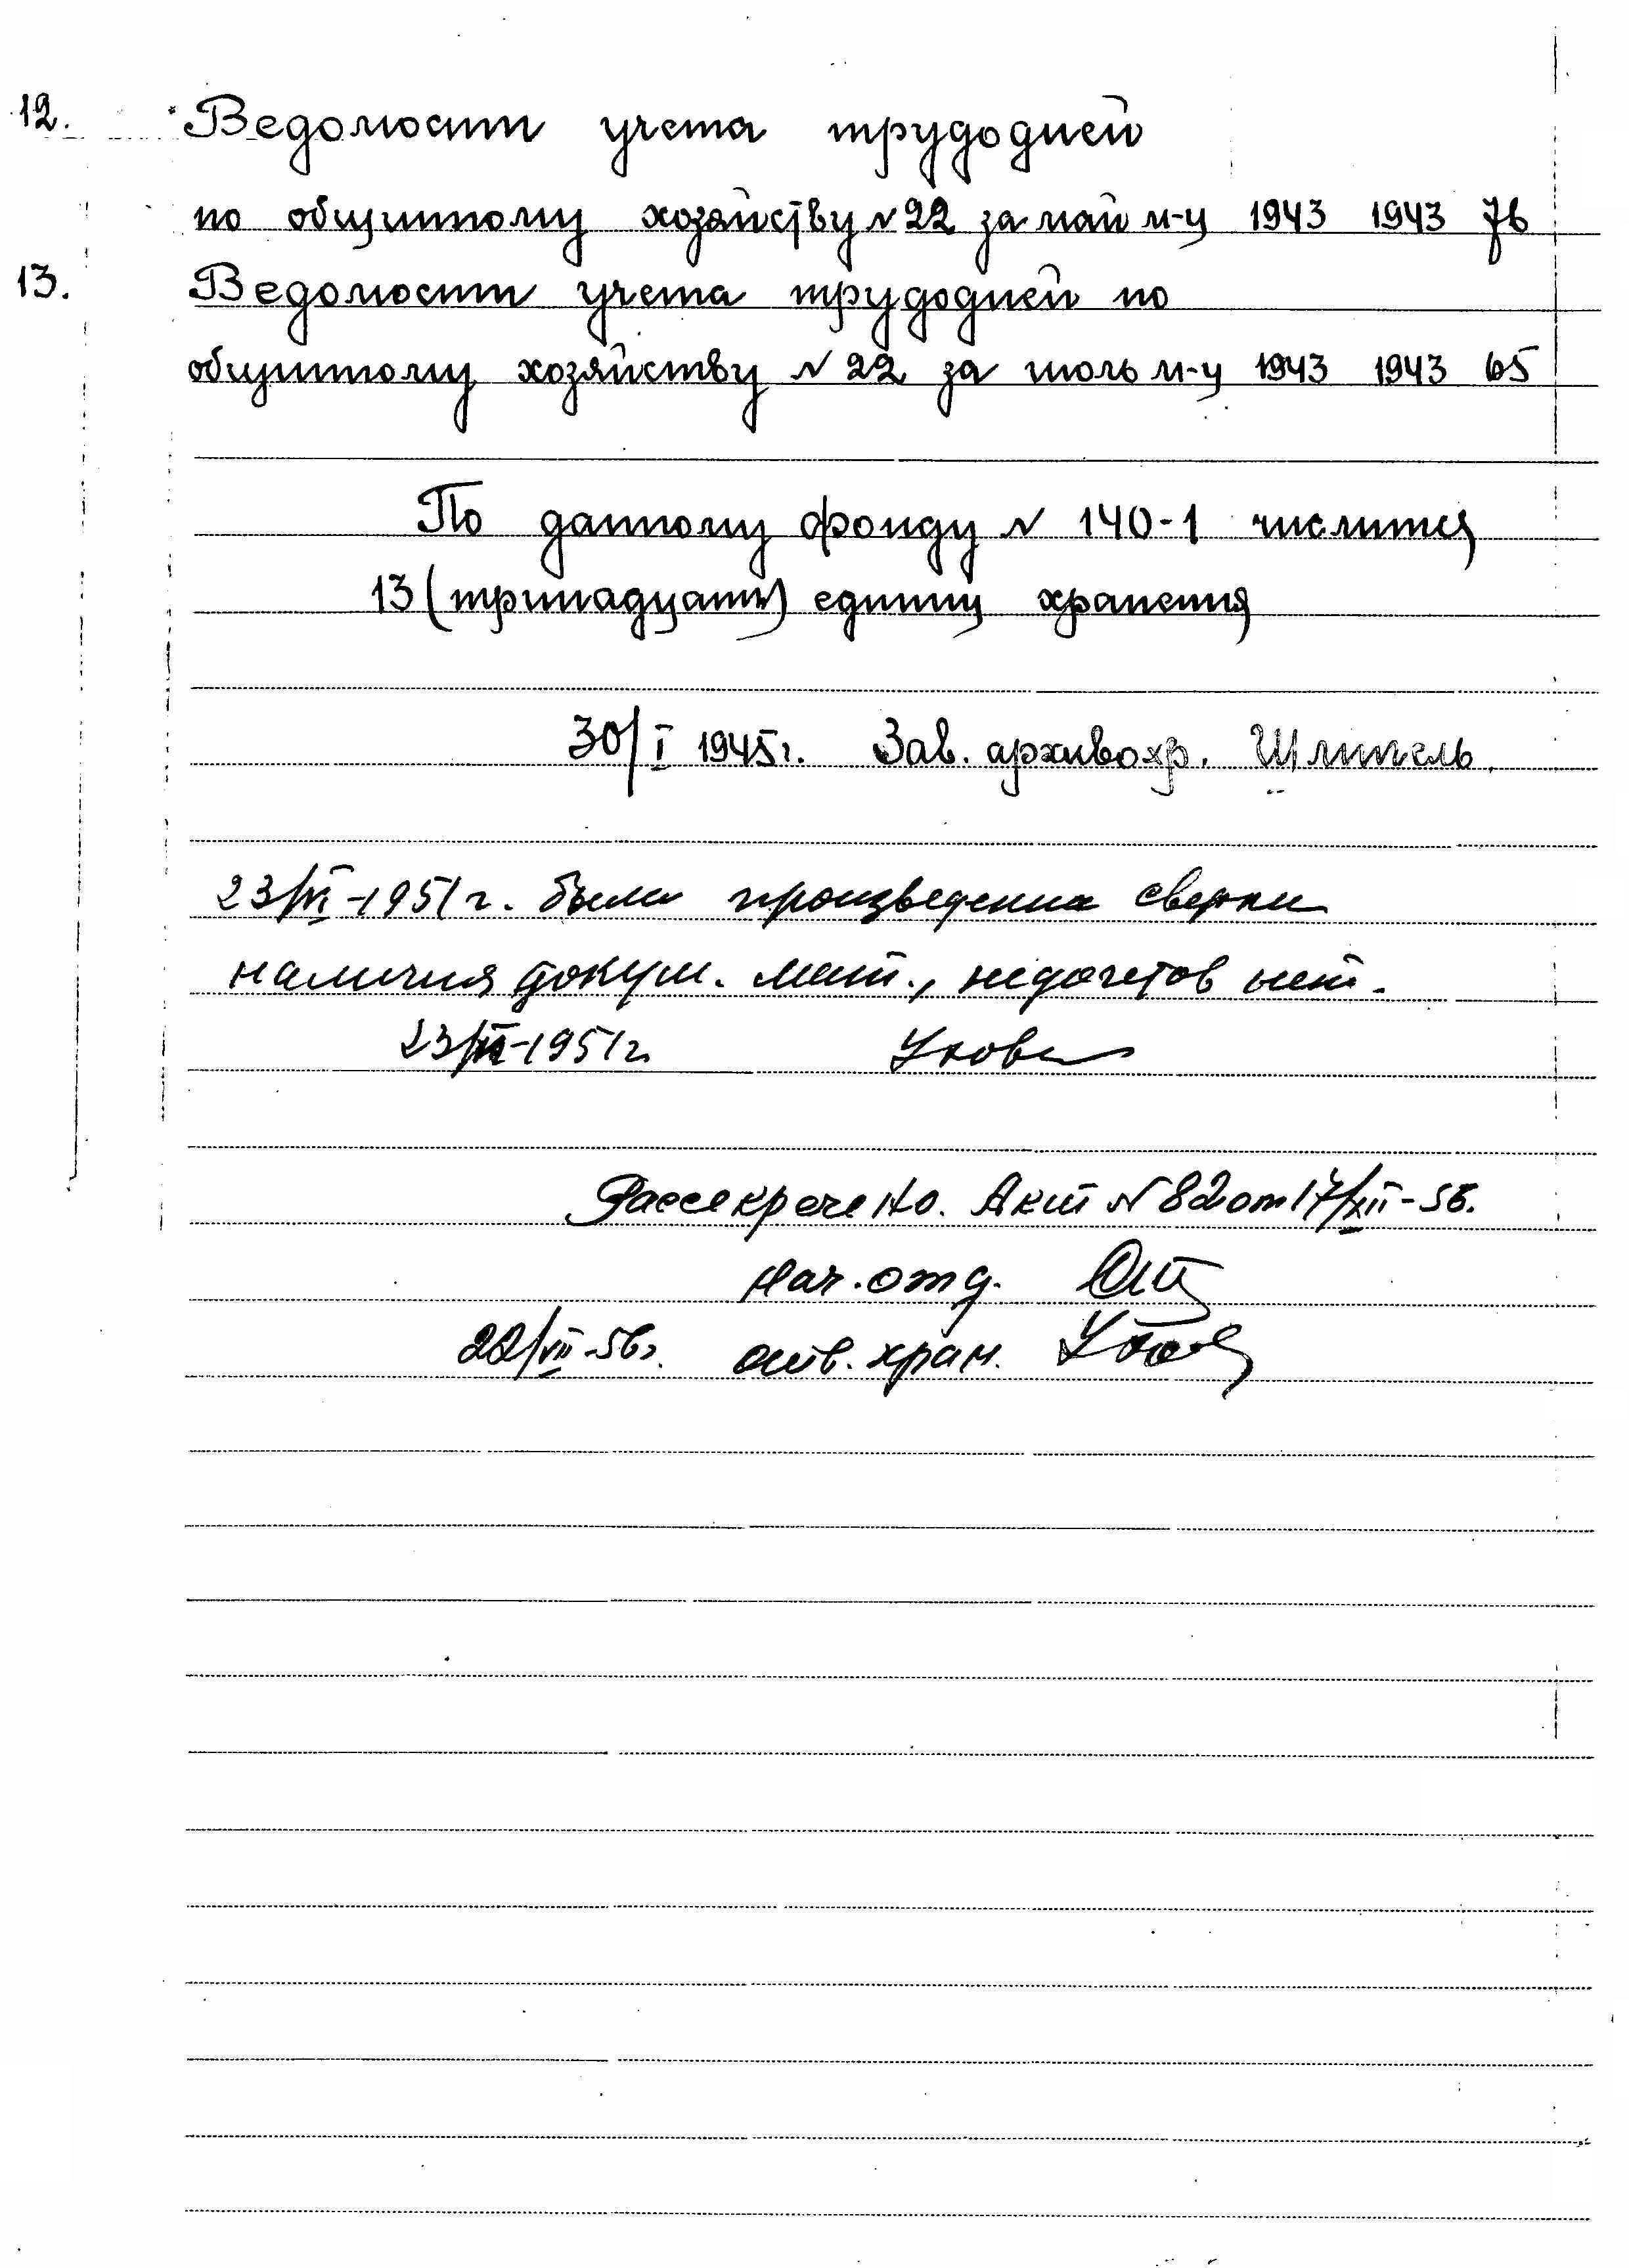 12. Ведомости учета трудодней
по общинному хозяйству № 22 за май м-ц 1943 1943 76
13. Ведомости учета трудодней по
общинному хозяйству № 22 за июль м-ц 1943 1943 65
По данному фонду № 140-1 числится
13 (тринадцать) единиц хранения
30/I 1945г. Зав. архивохр.
23/VI-1951г. была произведена сверка
наличия докум. мат., недочетов нет.
23/VI-1951г.
Рассекречено. Акт № 82 от 17/XII-56.
Нач. отд.
22/VII-56г. отв. хран.